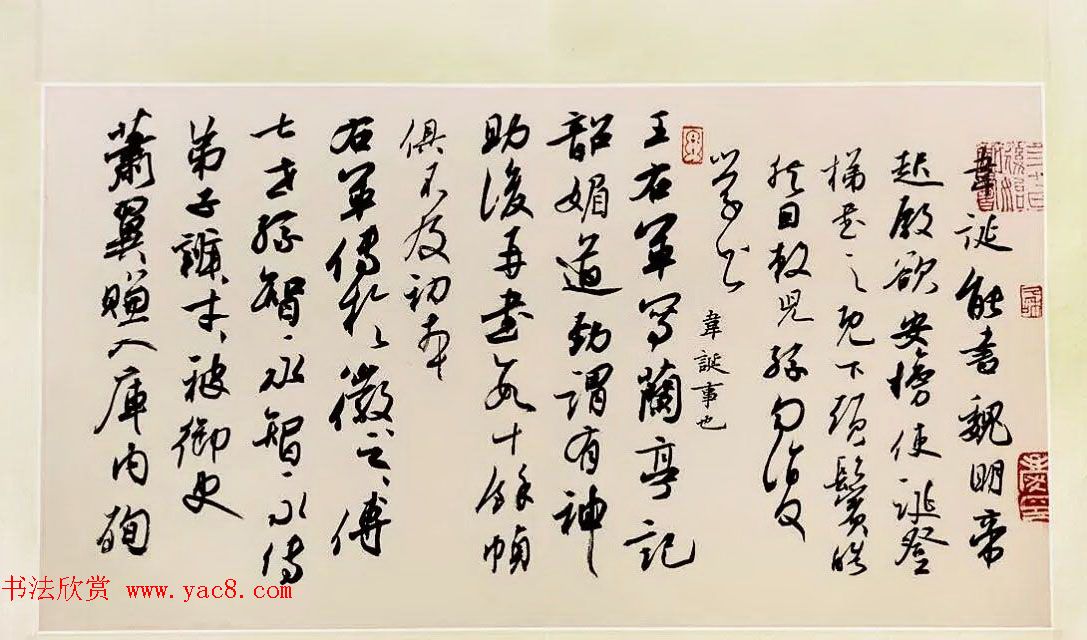 韋誕能書魏明帝
起殿欲安榜使誕登
梯書之既下頭鬢皓
然因敕兒孫勿復
學書
韋誕事也
王右軍寫蘭亭記
韶媚遒勁謂有神
助後再書數十餘幀
俱不及初本
右軍傳於徽之、傳
七世孫智永智永傳
弟子辯才、被御史
蕭翼賺入庫内殉
书法欣赏 www.yac8.com